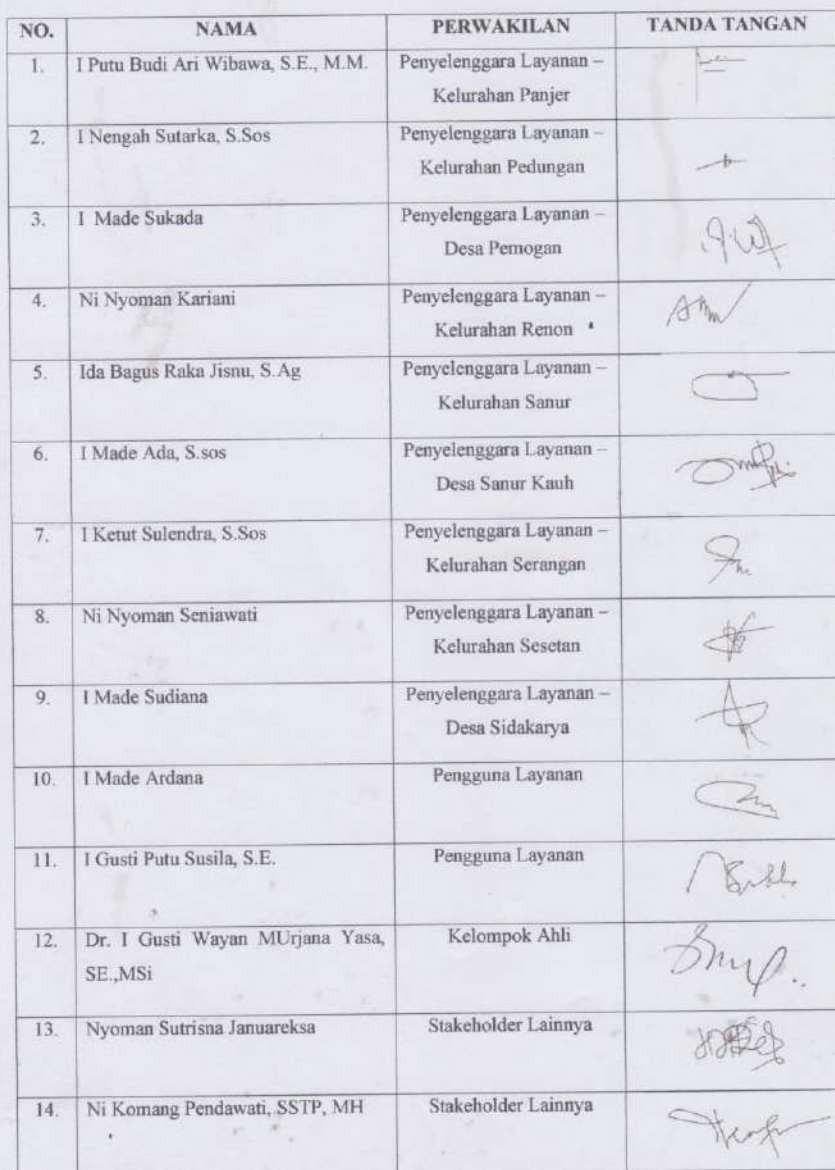 NO. NAMA PERWAKILAN TANDA TANGAN
1. I Putu Budi Ari Wibawa, S.E., M.M. Penyelenggara Layanan –
Kelurahan Panjer
2. I Nengah Sutarka, S.Sos Penyelenggara Layanan –
Kelurahan Pedungan
3. I Made Sukada Penyelenggara Layanan –
Desa Pemogan
4. Ni Nyoman Kariani Penyelenggara Layanan –
Kelurahan Renon
5. Ida Bagus Raka Jisnu, S.Ag Penyelenggara Layanan –
Kelurahan Sanur
6. I Made Ada, S.sos Penyelenggara Layanan –
Desa Sanur Kauh
7. I Ketut Sulendra, S.Sos Penyelenggara Layanan –
Kelurahan Serangan
8. Ni Nyoman Seniawati Penyelenggara Layanan –
Kelurahan Sesetan
9. I Made Sudiana Penyelenggara Layanan –
Desa Sidakarya
10. I Made Ardana Pengguna Layanan
11. I Gusti Putu Susila, S.E. Pengguna Layanan
12. Dr. I Gusti Wayan MUrjana Yasa, Kelompok Ahli
SE.,MSi
13. Nyoman Sutrisna Januareksa Stakeholder Lainnya
14. Ni Komang Pendawati, SSTP, MH Stakeholder Lainnya